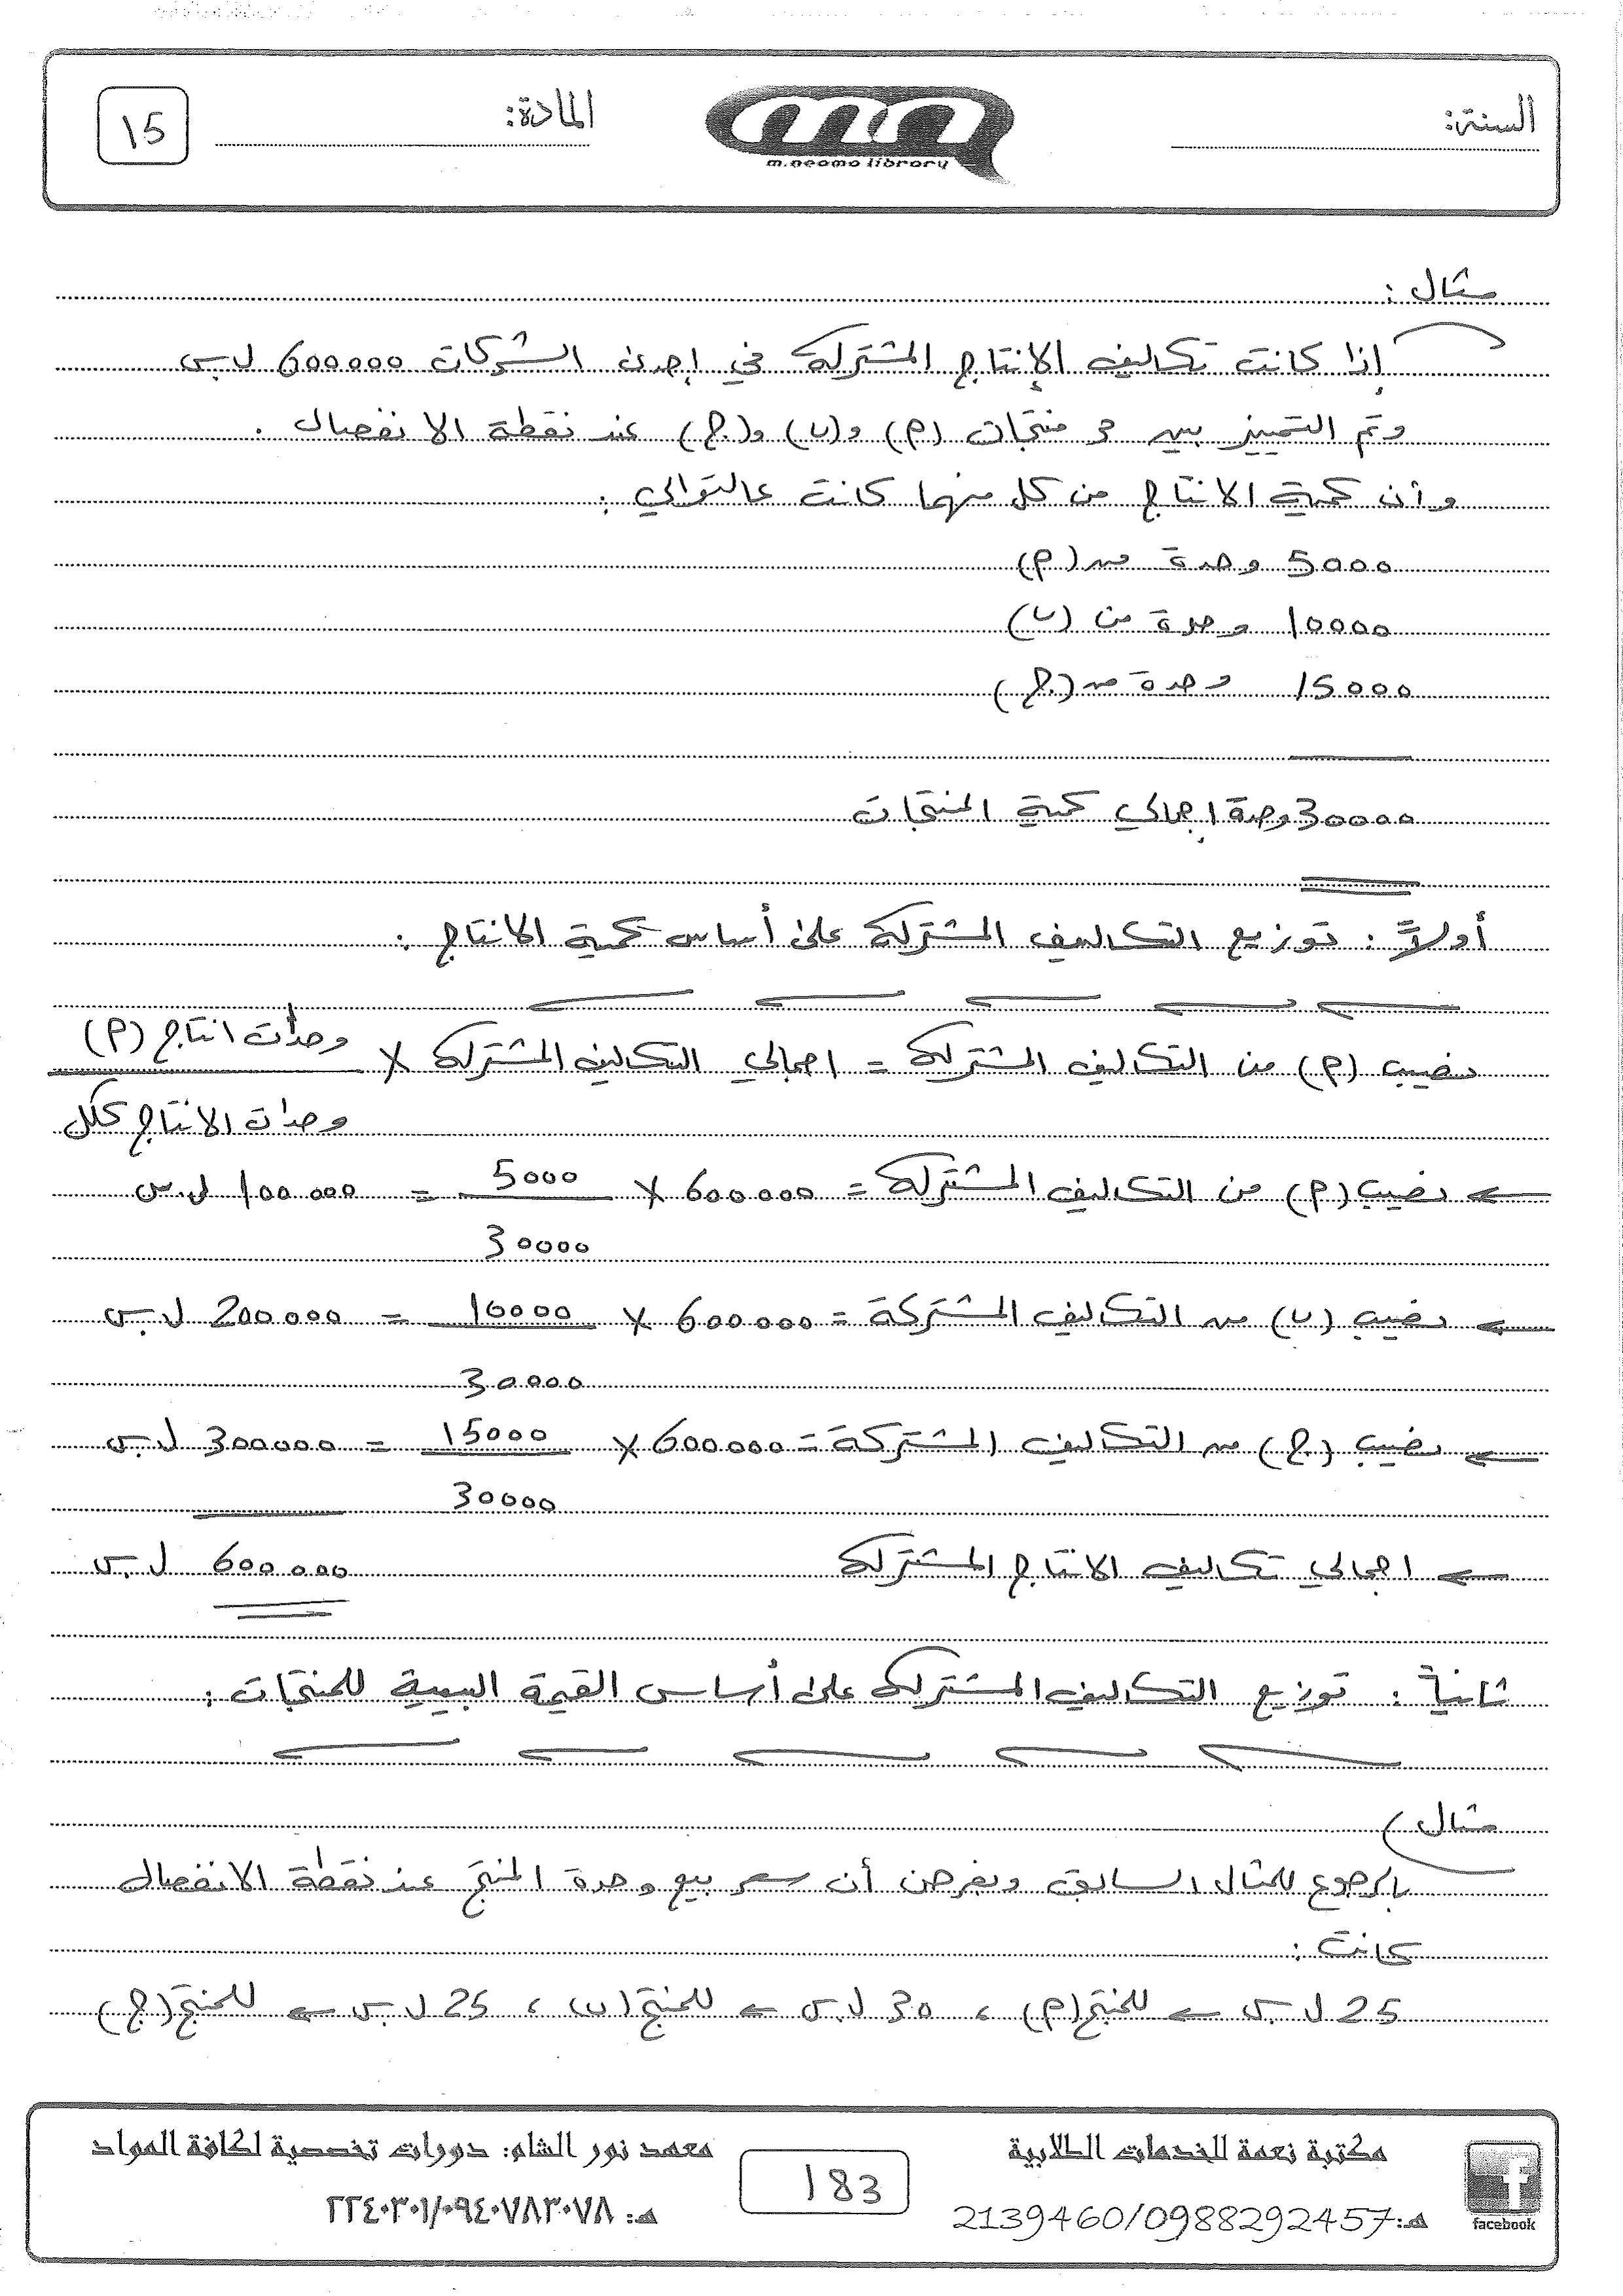 السنة:
m.neomo library
المادة:
15
مثال :
إذا كانت تكاليف الإنتاج المشتركة في إحدى الشركات 600000 ل.س
وتم التمييز بين 3 منتجات (م) و(ب) و(ج) عند نقطة الانفصال .
وأن كمية الانتاج من كل منهما كانت عالتوالي :
5000 وحدة من (م)
10000 وحدة من (ب)
15000 وحدة من (ج)
30000 وحدة إجمالي كمية المنتجات
أولاً : توزيع التكاليف المشتركة على أساس كمية الانتاج :
نصيب (م) من التكاليف المشتركة = اجمالي التكاليف المشتركة × وحدات انتاج (م)
وحدات الانتاج ككل
نصيب (م) من التكاليف المشتركة = 600000 × 5000 = 100000 ل.س
30000
نصيب (ب) من التكاليف المشتركة = 600000 × 10000 = 200000 ل.س
30000
نصيب (ج) من التكاليف المشتركة = 600000 × 15000 = 300000 ل.س
30000
اجمالي تكاليف الانتاج المشتركة 600000 ل.س
ثانياً : توزيع التكاليف المشتركة على أساس القيمة البيعية للمنتجات :
مثال
بالرجوع للمثال السابق وبفرض أن سعر بيع وحدة المنتج عند نقطة الانفصال
كانت :
25 ل.س ← للمنتج (م) ، 30 ل.س ← للمنتج (ب) ، 25 ل.س ← للمنتج (ج)
مكتبة نعمة للخدمات الطلابية
هـ: 2139460/0988292457
facebook
183
معهد نور الشام: دورات تخصصية لكافة المواد
هـ: ٢٢٤٠٣٠١/٠٩٤٠٧٨٣٠٧٨